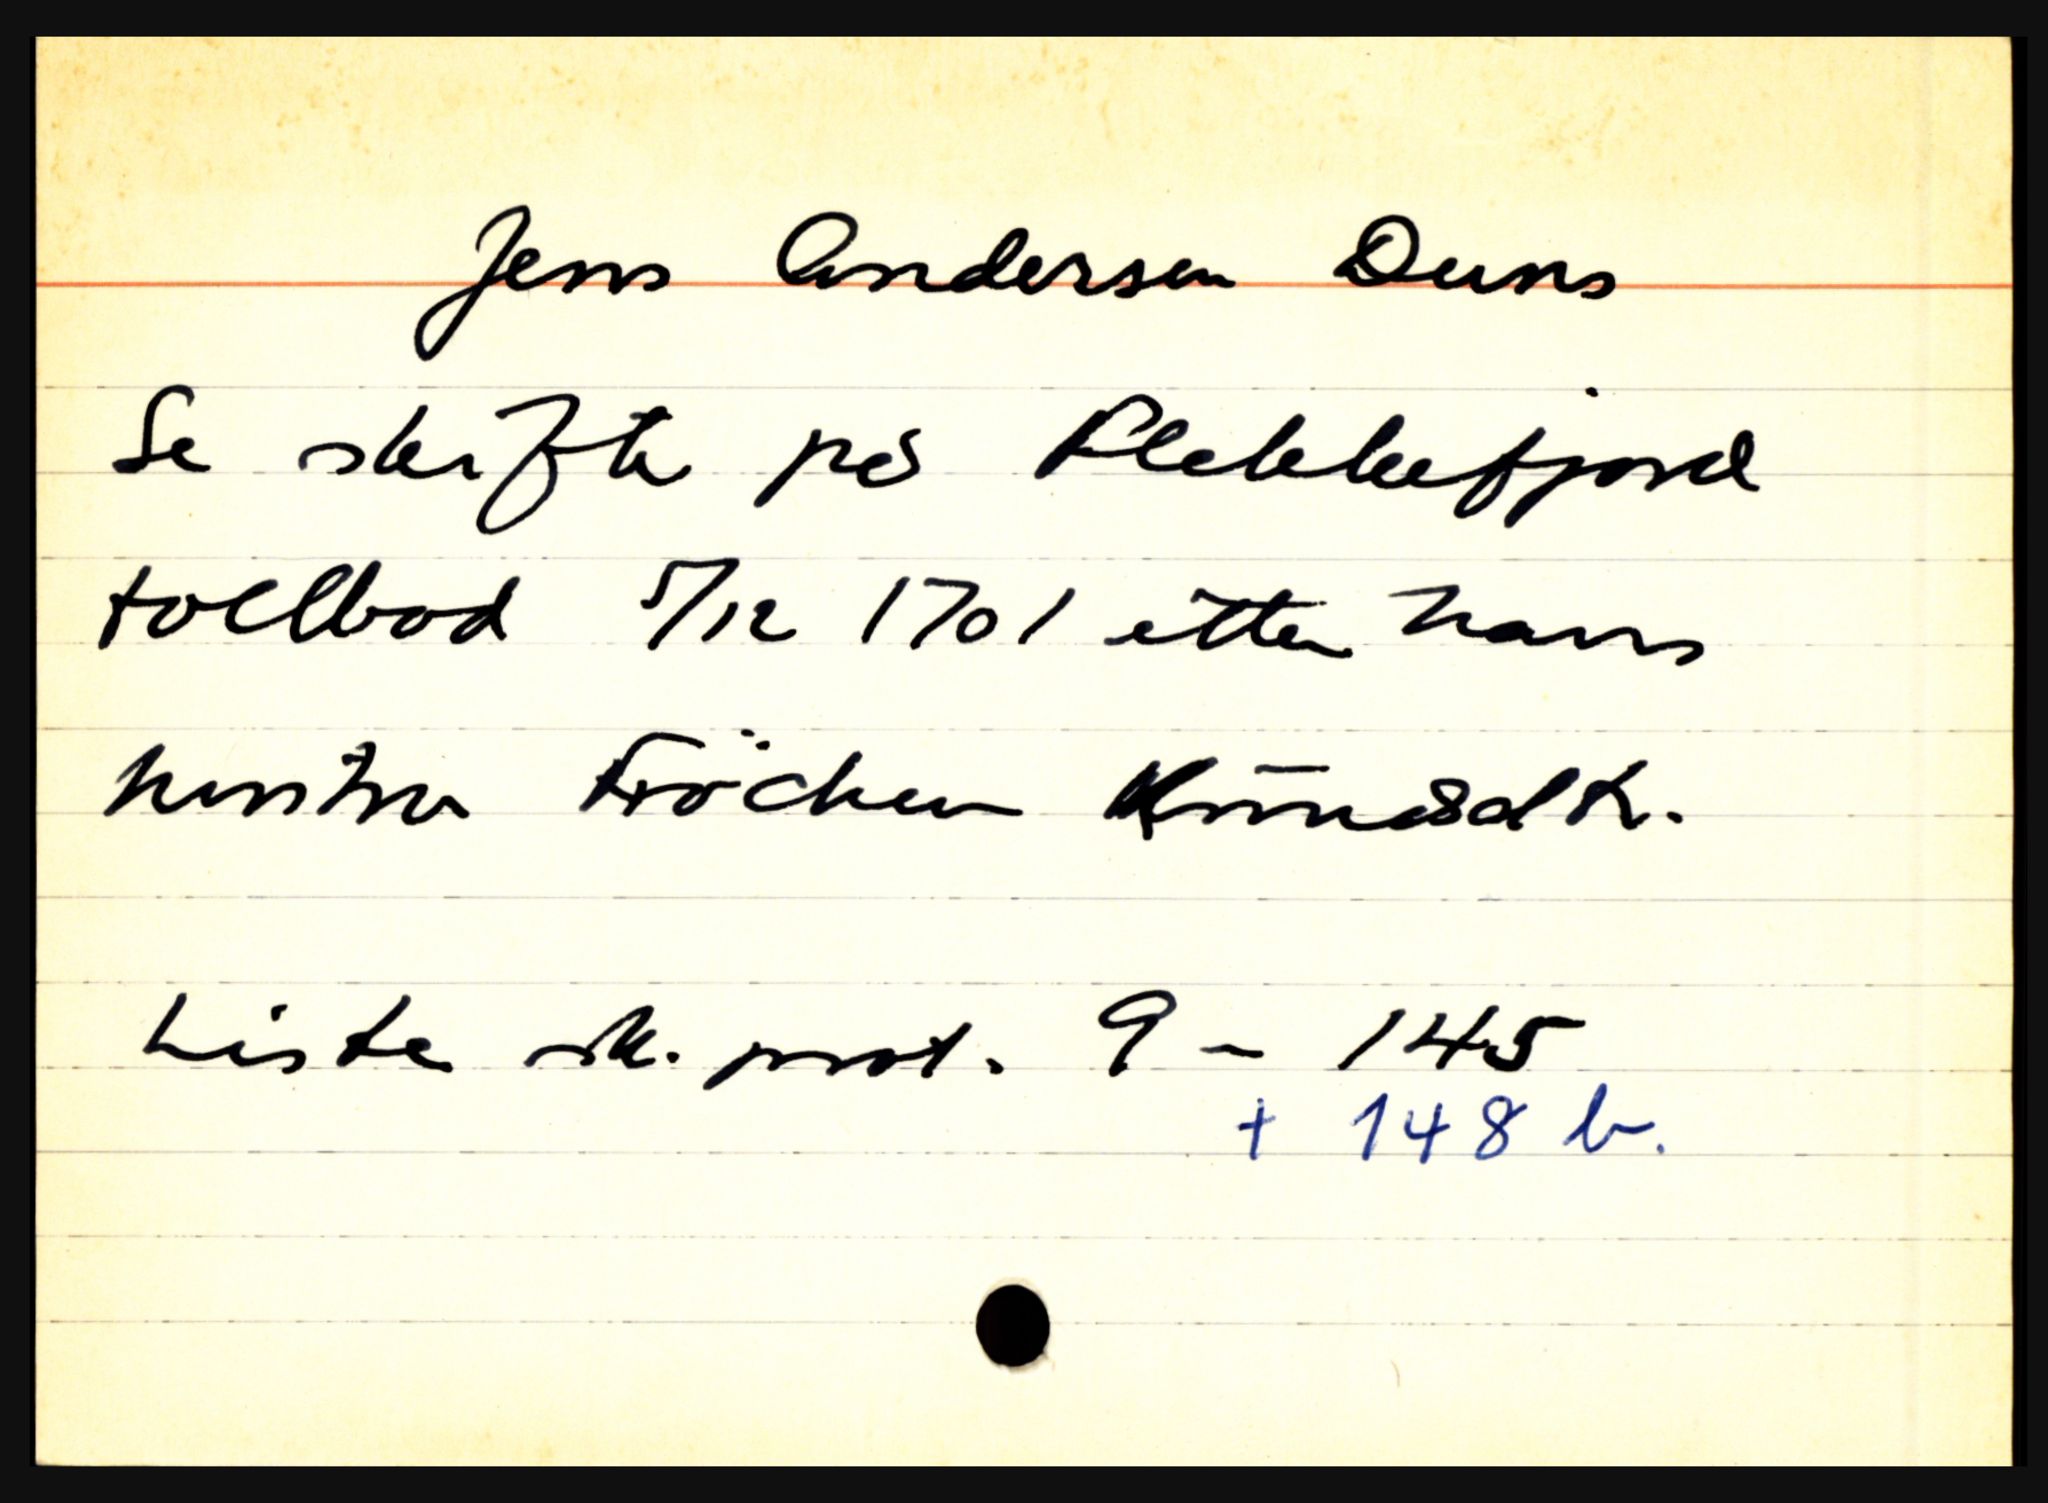 Jens Andersen Duns
Se skifte på Flekkefjord
tollbod 5/12 1701 etter hans
hustru Fröchen
Lister sk. prot. 9 – 145
+ 148 b.